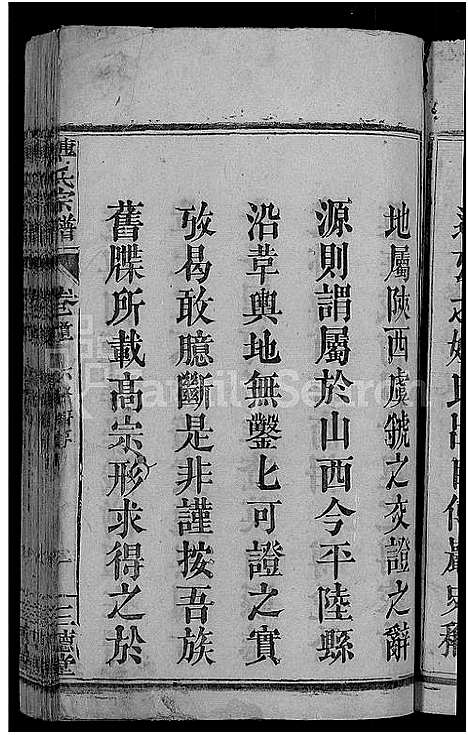 地屬陝西虞虢之交證之辭
源則謂屬於山西今平陸縣
沿革輿地無鑿匕可證之實
攷曷敢臆斷是非謹按吾族
舊牒所載高宗形求得之於
傅氏宗譜
三德堂